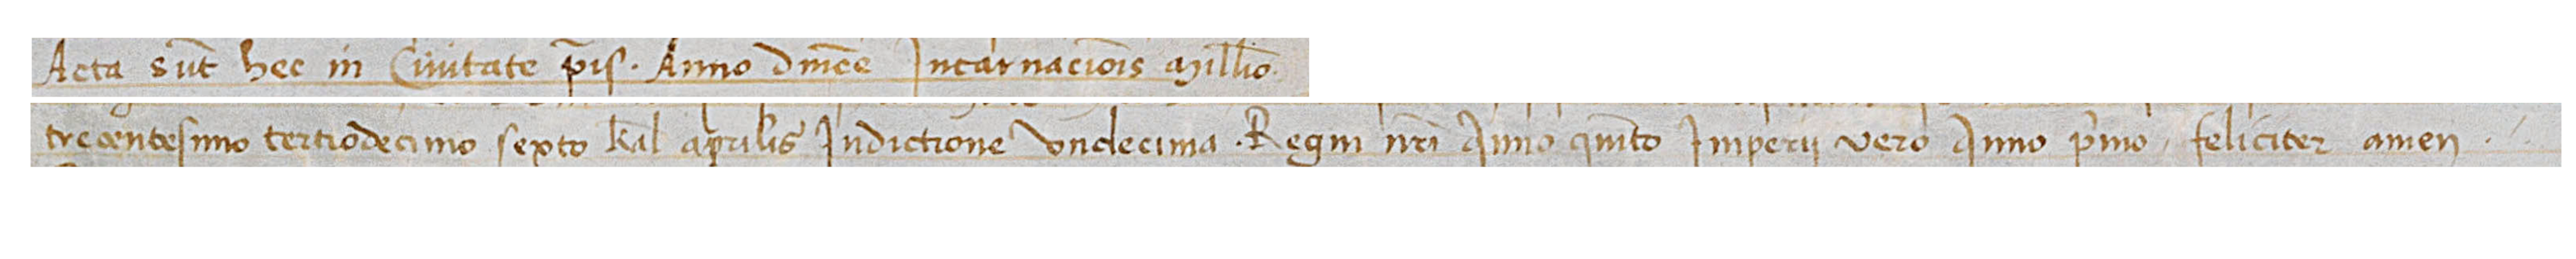 Acta sūt hec in Ciuitate p̄is. Anno dn̄ice Incarnaciōis Mill̄io.
trecentesimo tertiodecimo sexto kal̄ aprilis Indictione vndecima. Regni nr̄i Anno quīto Imperii vero Anno p̄mo, feliciter amen.